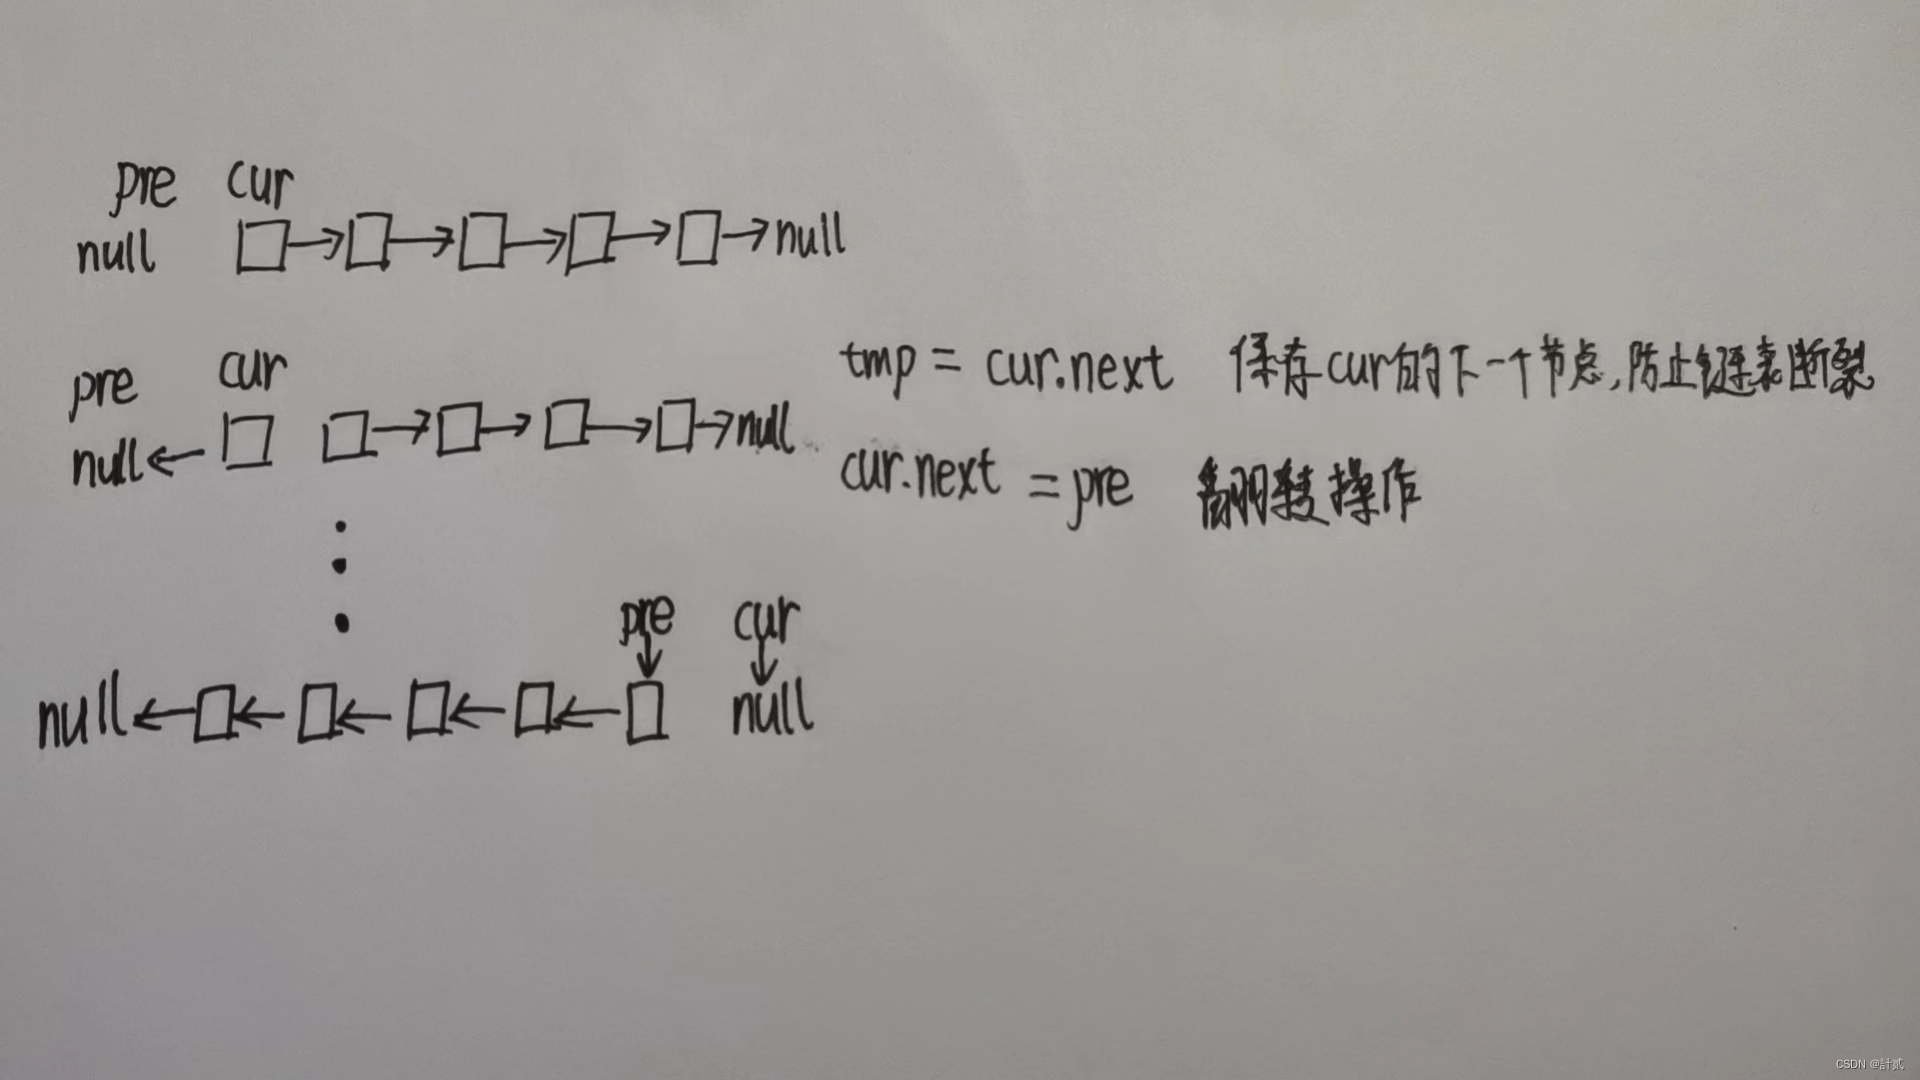 pre cur
null null
pre cur
null null
tmp = cur.next 保存cur的下一个节点,防止链表断裂
cur.next = pre 翻转操作
pre cur
null null
CSDN @計贰